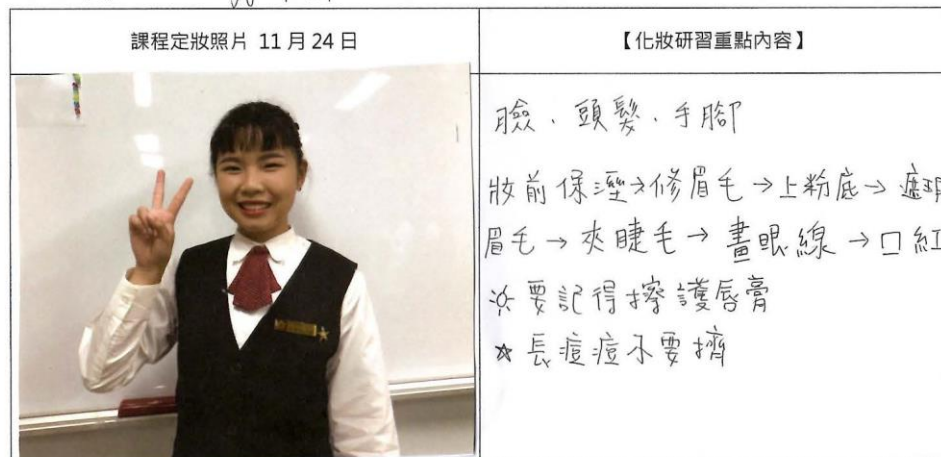 課程定妝照片 11 月 24 日
【化妝研習重點內容】
臉、頭髮、手腳
妝前保溼→修眉毛→上粉底→遮瑕
眉毛→夾睫毛→畫眼線→口紅
※要記得擦護唇膏
☆長痘痘不要擠